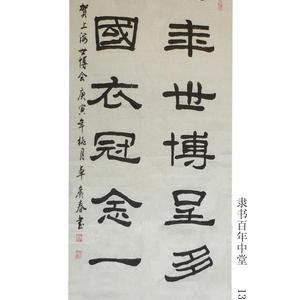 年世博呈多
國衣冠念一
贺上海世博会庚寅年桃月卓春书
隶书百年中堂 13